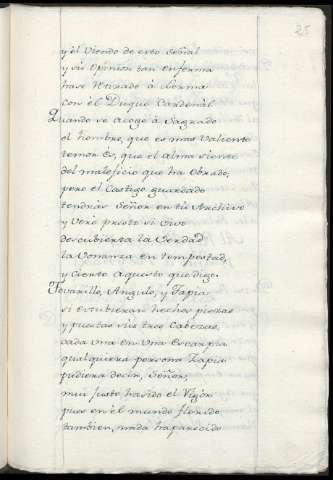 25
y él viendo de esto señal
y su opinion tan enferma
hase retirado à Lerma
con él Duque Cardenàl
Quando se acoge à Sagrado
el hombre, que es mas valiente
temor és, que el alma siente
del maleficio que ha obrado,
pero el Castigo guardado
tendràs Señor en tu Archivo
y Verè presto si vivo
descubierta la Verdad
la bonanza en tempestad,
y ciento aquesto que digo.
Tovarillo, Angulo, y Tapia,
si estubieran hechos piezas
y puestas sus tres Cabezas,
cada una en una escarpia
qualquiera persona Zapia
pudiera decir, Señor,
mui justo ha sido el Rigor
pues en él mundo florido
tambien, nada ha parecido